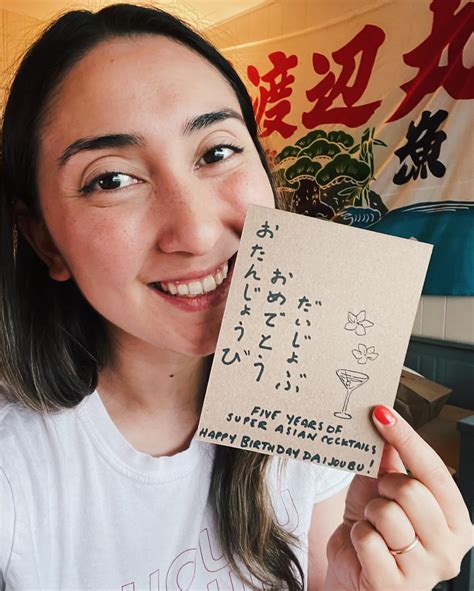 渡辺丸
漁
おたんじょうび
おめでとう
だいじょぶ
FIVE YEARS OF
SUPER ASIAN COCKTAILS
HAPPY BIRTHDAY DAIJOUBU!